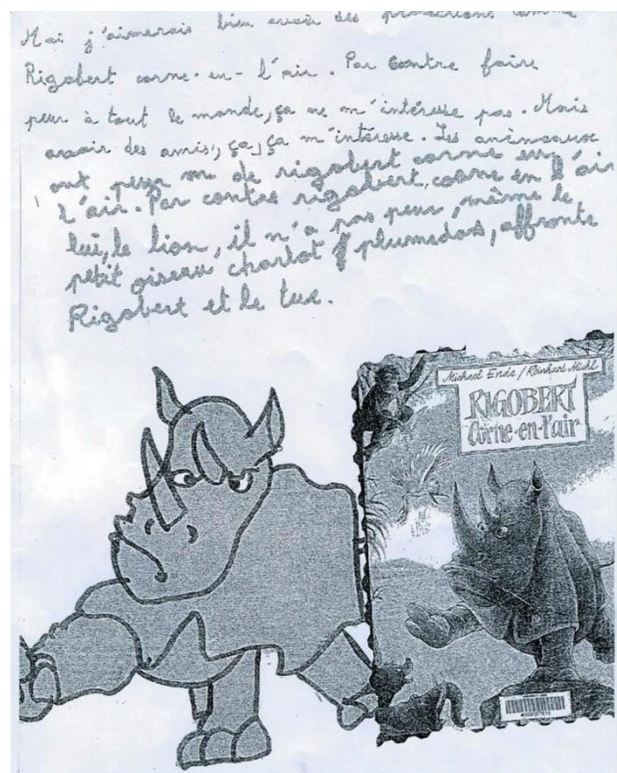 Moi j'aimerais bien avoir des protections comme
Rigobert corne-en-l'air. Par contre faire
peur à tout le monde, ça ne m'intéresse pas. Mais
avoir des amis, ça, ça m'intéresse. Les animeaux
ont peur de rigobert corne en
l'air. Par contre rigobert, corne en l'air
lui, le lion, il n'a pas peur, même le
petit oiseau charlot, affronte
Rigobert et le tue.
Michael Ende / Reinhard Michl
RIGOBERT
Corne-en-l'air